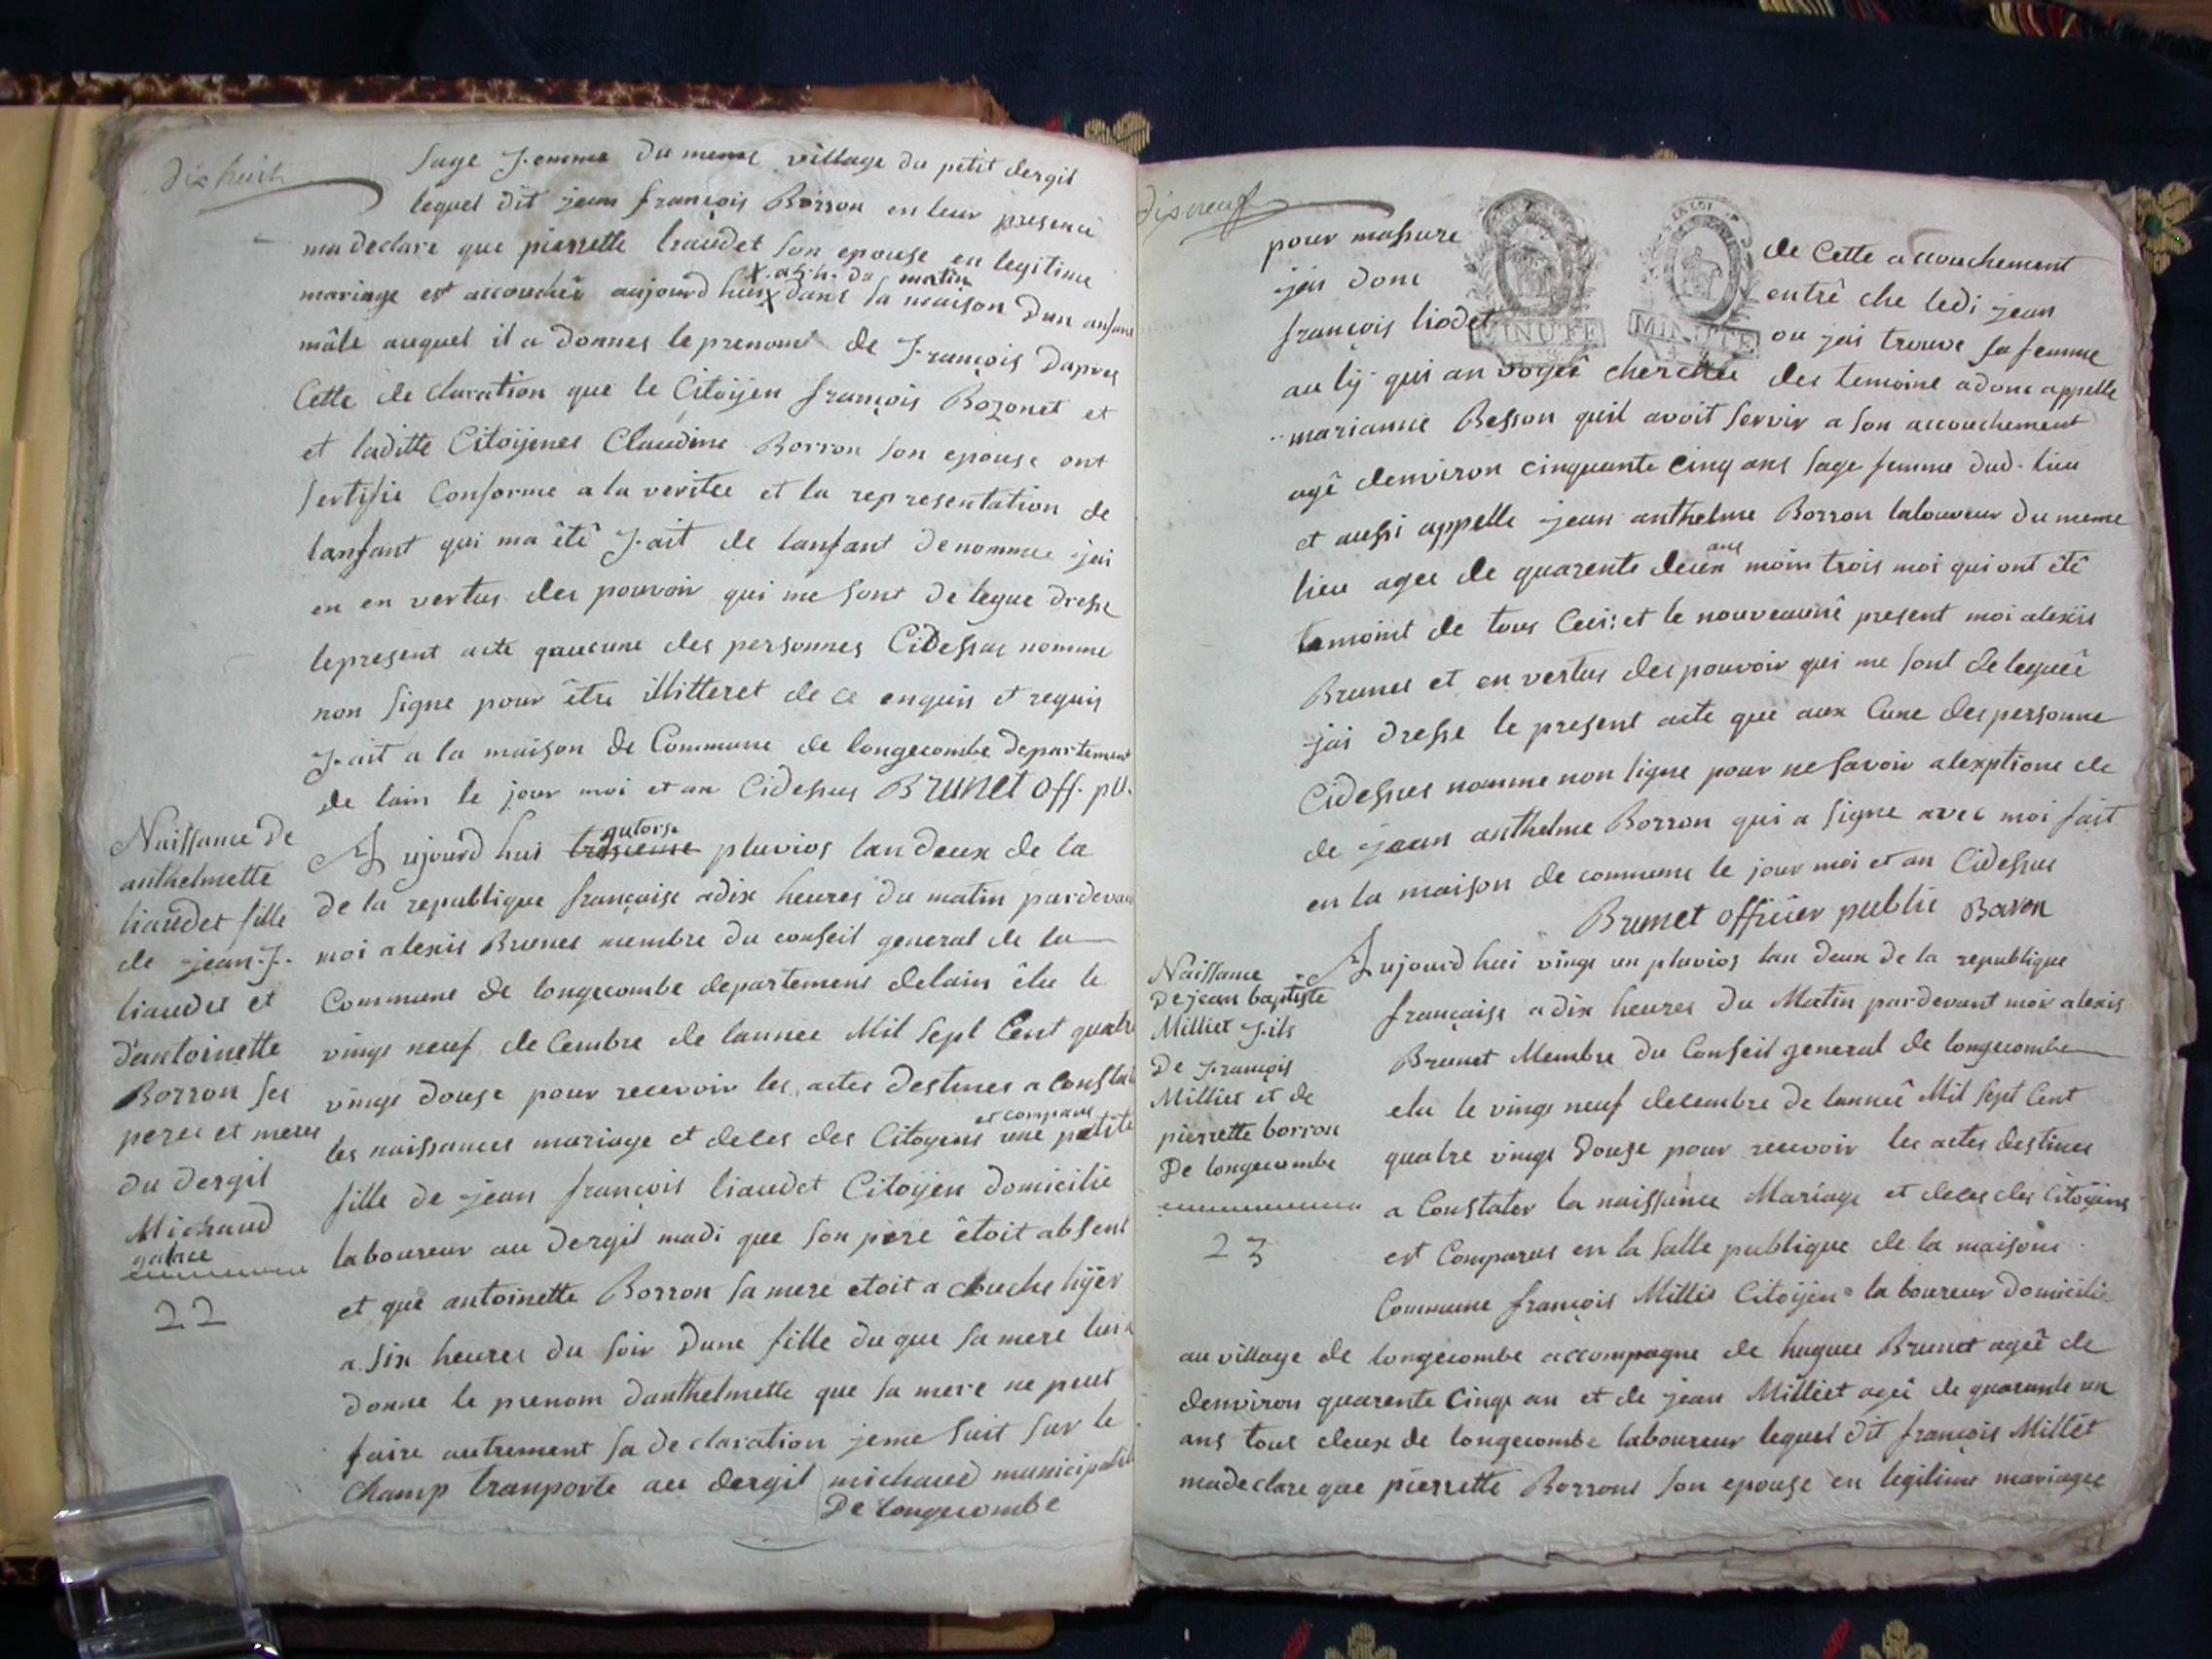 dix huit
Sage femme du meme village du petit dergit
lequel dit jean françois Borron en leur presence
ma declare que pierrette liaudet son epouse en legitime
x a 5 h. du matin
mariage est accouchée aujourd huix dans sa maison dun anfant
mâle auquel il a donnes le prenom de François Dapres
Cette de claration que le Citoÿen françois Bozonet et
et laditte Citoÿenes Claudine Borron son epouse ont
Sertifie Conforme a la veritee et la representation de
lanfant qui ma êtê fait de lanfant denommee jai
en en vertus des pouvoir qui me sont delegue dresse
le present acte qaucune des personnes Cidessus nomme
non signe pour être illitteret de ce enquis et requis
fait a la maison de Commune de longecombe departement
de lain le jour moi et an Cidessus Brunet off. pu.
Naissance de
anthelmette
liaudet fille
de jean.f.
liaudet et
d'antoinette
Borron ses
peres et meres
du dergit
Michaud
22
quatorse
Aujourd hui troisieme pluvios lan deux de la
de la republique française a dix heures du matin pardevan
moi alexis Brunet membre du conseil general de la
Commune de longecombe departement delain êlu le
vingt neuf decembre de lannee Mil Sept Cent quatre
vingt douse pour recevoir les actes destines a Constat
et comparus
les naissances mariage et deces des Citoyens une petite
fille de jean françois liaudet Citoÿen domicilie
laboureur au dergit madi que son père êtoit absent
et que antoinette Borron sa mere etoit a chouche hÿer
a six heures du soir dune fille du que sa mere lui a
donne le prenom danthelmette que sa mere ne peut
faire autrement sa declaration jeme suit sur le
champ tranporte au dergit michaud municipalite
De longecombe
dix neuf
pour massure de Cette accouchement
jai donc entrê che ledi jean
françois liodet ou jai trouve sa femme
MINUTE MINUTE
au lÿ qui an voÿee cherchee des temoins a donc appelle
marianne Besson quil avoit servir a son accouchement
agê denviron cinquante cinq ans sage femme dud. lieu
et aussi appelle jean anthelme Borron laboureur du meme
ans
lieu agee de quarente deux moin trois moi qui ont êtê
temoint de tous Ceci: et le nouveaunê present moi alexis
Brunet et en vertus des pouvoir qui me sont deleguêe
jai dresse le present acte que aux Cune des personne
Cidessus nomme non signe pour ne savoir alexptione de
de jean anthelme Borron qui a signe avec moi fait
en la maison de commune le jour moi et an Cidessus
Brunet officier public Boron
Naissance
De jean baptiste
Milliet fils
De françois
Milliet et de
pierrette borron
De longecombe
23
Aujourd hui vingt un pluvios lan deux de la republique
française a dix heures du Matin pardevant moi alexis
Brunet Membre du Conseil general de longecombe
elu le vingt neuf decembre de lanneê Mil Sept Cent
quatre vingt douse pour recevoir les actes destines
a Constater la naissance Mariage et deces des Citoÿens
est Comparus en la salle publique de la maison
Commune françois Millie Citoÿen laboureur domicilie
au village de longecombe accompagne de hugue Brunet ageê de
denviron quarente Cinq an et de jean Milliet ageê de quarante un
ans tous deux de longecombe laboureur lequel dit françois Milliet
ma declare que pierrette Borrons son epouse en legitime mariagee